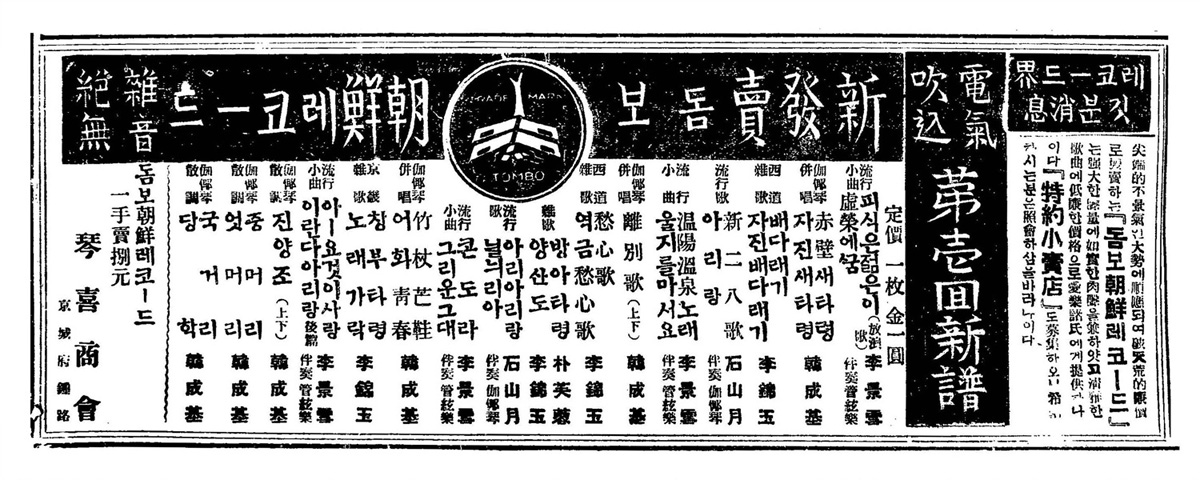 레코ー드界
깃분消息
尖端的不景氣인大勢에順應되여破天荒的廉價
로賣하는『돔보朝鮮레코ー드』
는强大한音量에如實한肉聲을兼하얏고淸雅한
歌曲에低廉한價格으로愛樂諸氏에게提供하나
이다『特約小賣店』도募集하오니希望
하시는분은照會하삼을바라나이다
電氣吹込
第壱回新譜
新發賣돔보
TRADE MARK
TOMBO
朝鮮레코ー드
雜音絕無
定價 一枚 金一圓
流行小曲 피식은젊은이(放浪歌) 虛榮에꿈 李景雪 伴奏管絃樂
伽倻琴併唱 赤壁새타령 자진새타령 韓成基
西道雜歌 배다래기 자진배다래기 李錦玉
流行歌 新二八歌 아리랑 石山月 伴奏伽倻琴
流行小曲 溫陽溫泉노래 울지를마서요 李景雪 伴奏管絃樂
伽倻琴併唱 離別歌(上下) 韓成基
西道雜歌 愁心歌 역금愁心歌 李錦玉
雜歌 방아타령 양산도 朴芙蓉 李錦玉
流行歌 아리아리랑 늴늬리아 石山月 伴奏伽倻琴
流行小曲 콘도라 그리운그대 李景雪 伴奏管絃樂
伽倻琴併唱 竹杖芒鞋 어화靑春 韓成基
京畿雜歌 창부타령 노래가락 李錦玉
流行小曲 아ー요것이사랑이란다 아리랑後篇 李景雪 伴奏管絃樂
伽倻琴散調 진양조(上下) 韓成基
伽倻琴散調 중머리 엇머리 韓成基
伽倻琴散調 국거리 당학 韓成基
돔보朝鮮레코ー드
一手賣捌元
琴喜商會
京城府鍾路